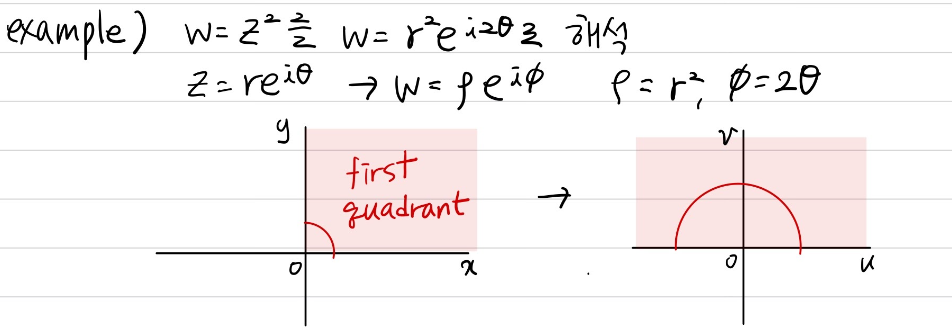 example) w = z² 를 w = r²e^{i2θ}로 해석
z = re^{iθ} → w = ρe^{iφ} ρ = r², φ = 2θ
y
first
quadrant
0
x
→
v
0
u